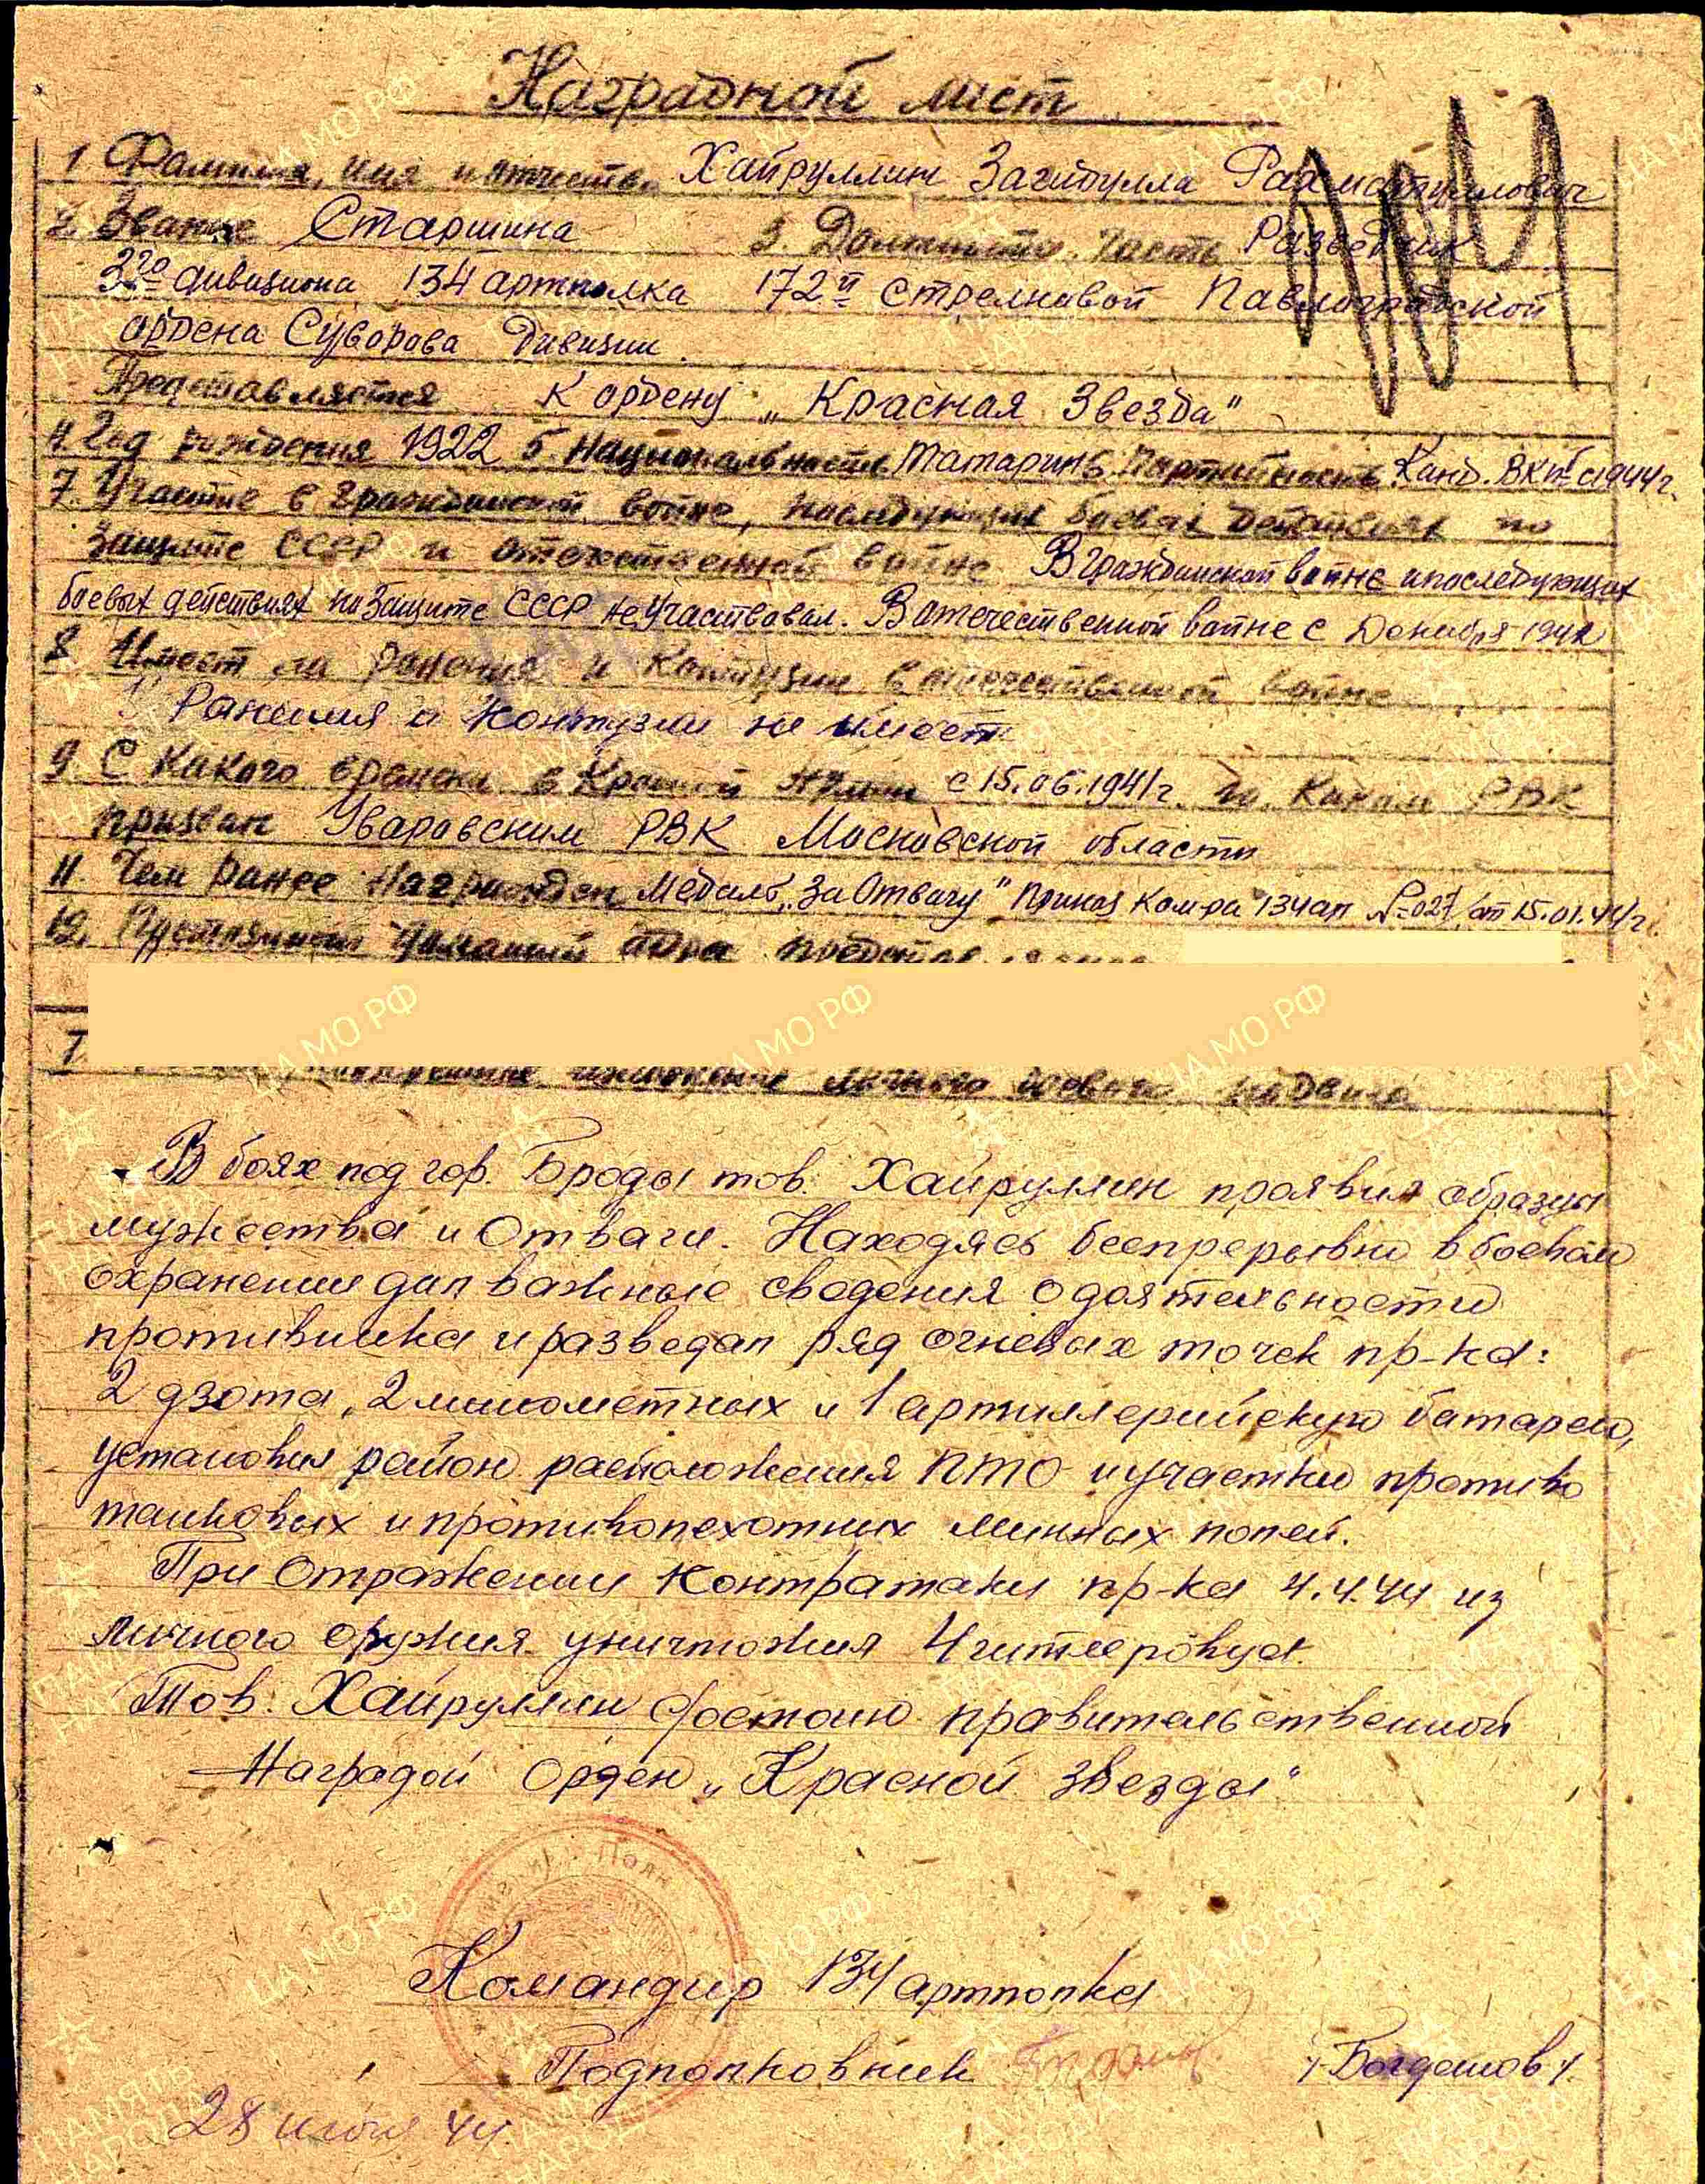 Наградной лист
1 Фамилия, имя и отчество Хайруллин Загидулла Рахматуллович
2. Звание Старшина 3. Должность, часть Разведчик
3го дивизиона 134 артполка 172й стрелковой Павлоградской
ордена Суворова Дивизии.
Представляется К ордену „Красная Звезда"
4. Год рождения 1922 5. Национальность Татарин 6. Партийность Канд. ВКПб с 1944 г.
7. Участие в гражданской войне, последующих боевых действиях по
защите СССР и отечественной войне В гражданской войне и последующих
боевых действиях по защите СССР не участвовал. В отечественной войне с Декабря 1942
8 Имеет ли ранения и контузии в отечественной войне
Ранения и Контузии не имеет
9. С какого времени в Красной Армии с 15.06.1941г. 10. Каким РВК
призван Уваровским РВК Московской области
11. Чем ранее награжден Медаль „За Отвагу" Приказ Ком-ра 134ап №027/ от 15.01.44г.
12. Постоянный домашний адрес
конкретное изложение личного боевого подвига
В боях под гор. Броды тов. Хайруллин проявил образцы
мужества и отваги. Находясь беспрерывно в боевом
охранении дал важные сведения о деятельности
противника и разведал ряд огневых точек пр-ка:
2 дзота, 2 минометных и 1 артиллерийскую батарею,
установил район расположения ПТО и участки противо
танковых и противопехотных минных полей.
При отражении контратаки пр-ка 4.4.44 из
личного оружия уничтожил 4 гитлеровца.
Тов. Хайруллин достоин правительственной
Наградой Орден „Красной Звезды"
Командир 134 артполка
Подполковник /Богданов/
28 июля 44.
ЦА МО РФ
ПАМЯТЬ НАРОДА